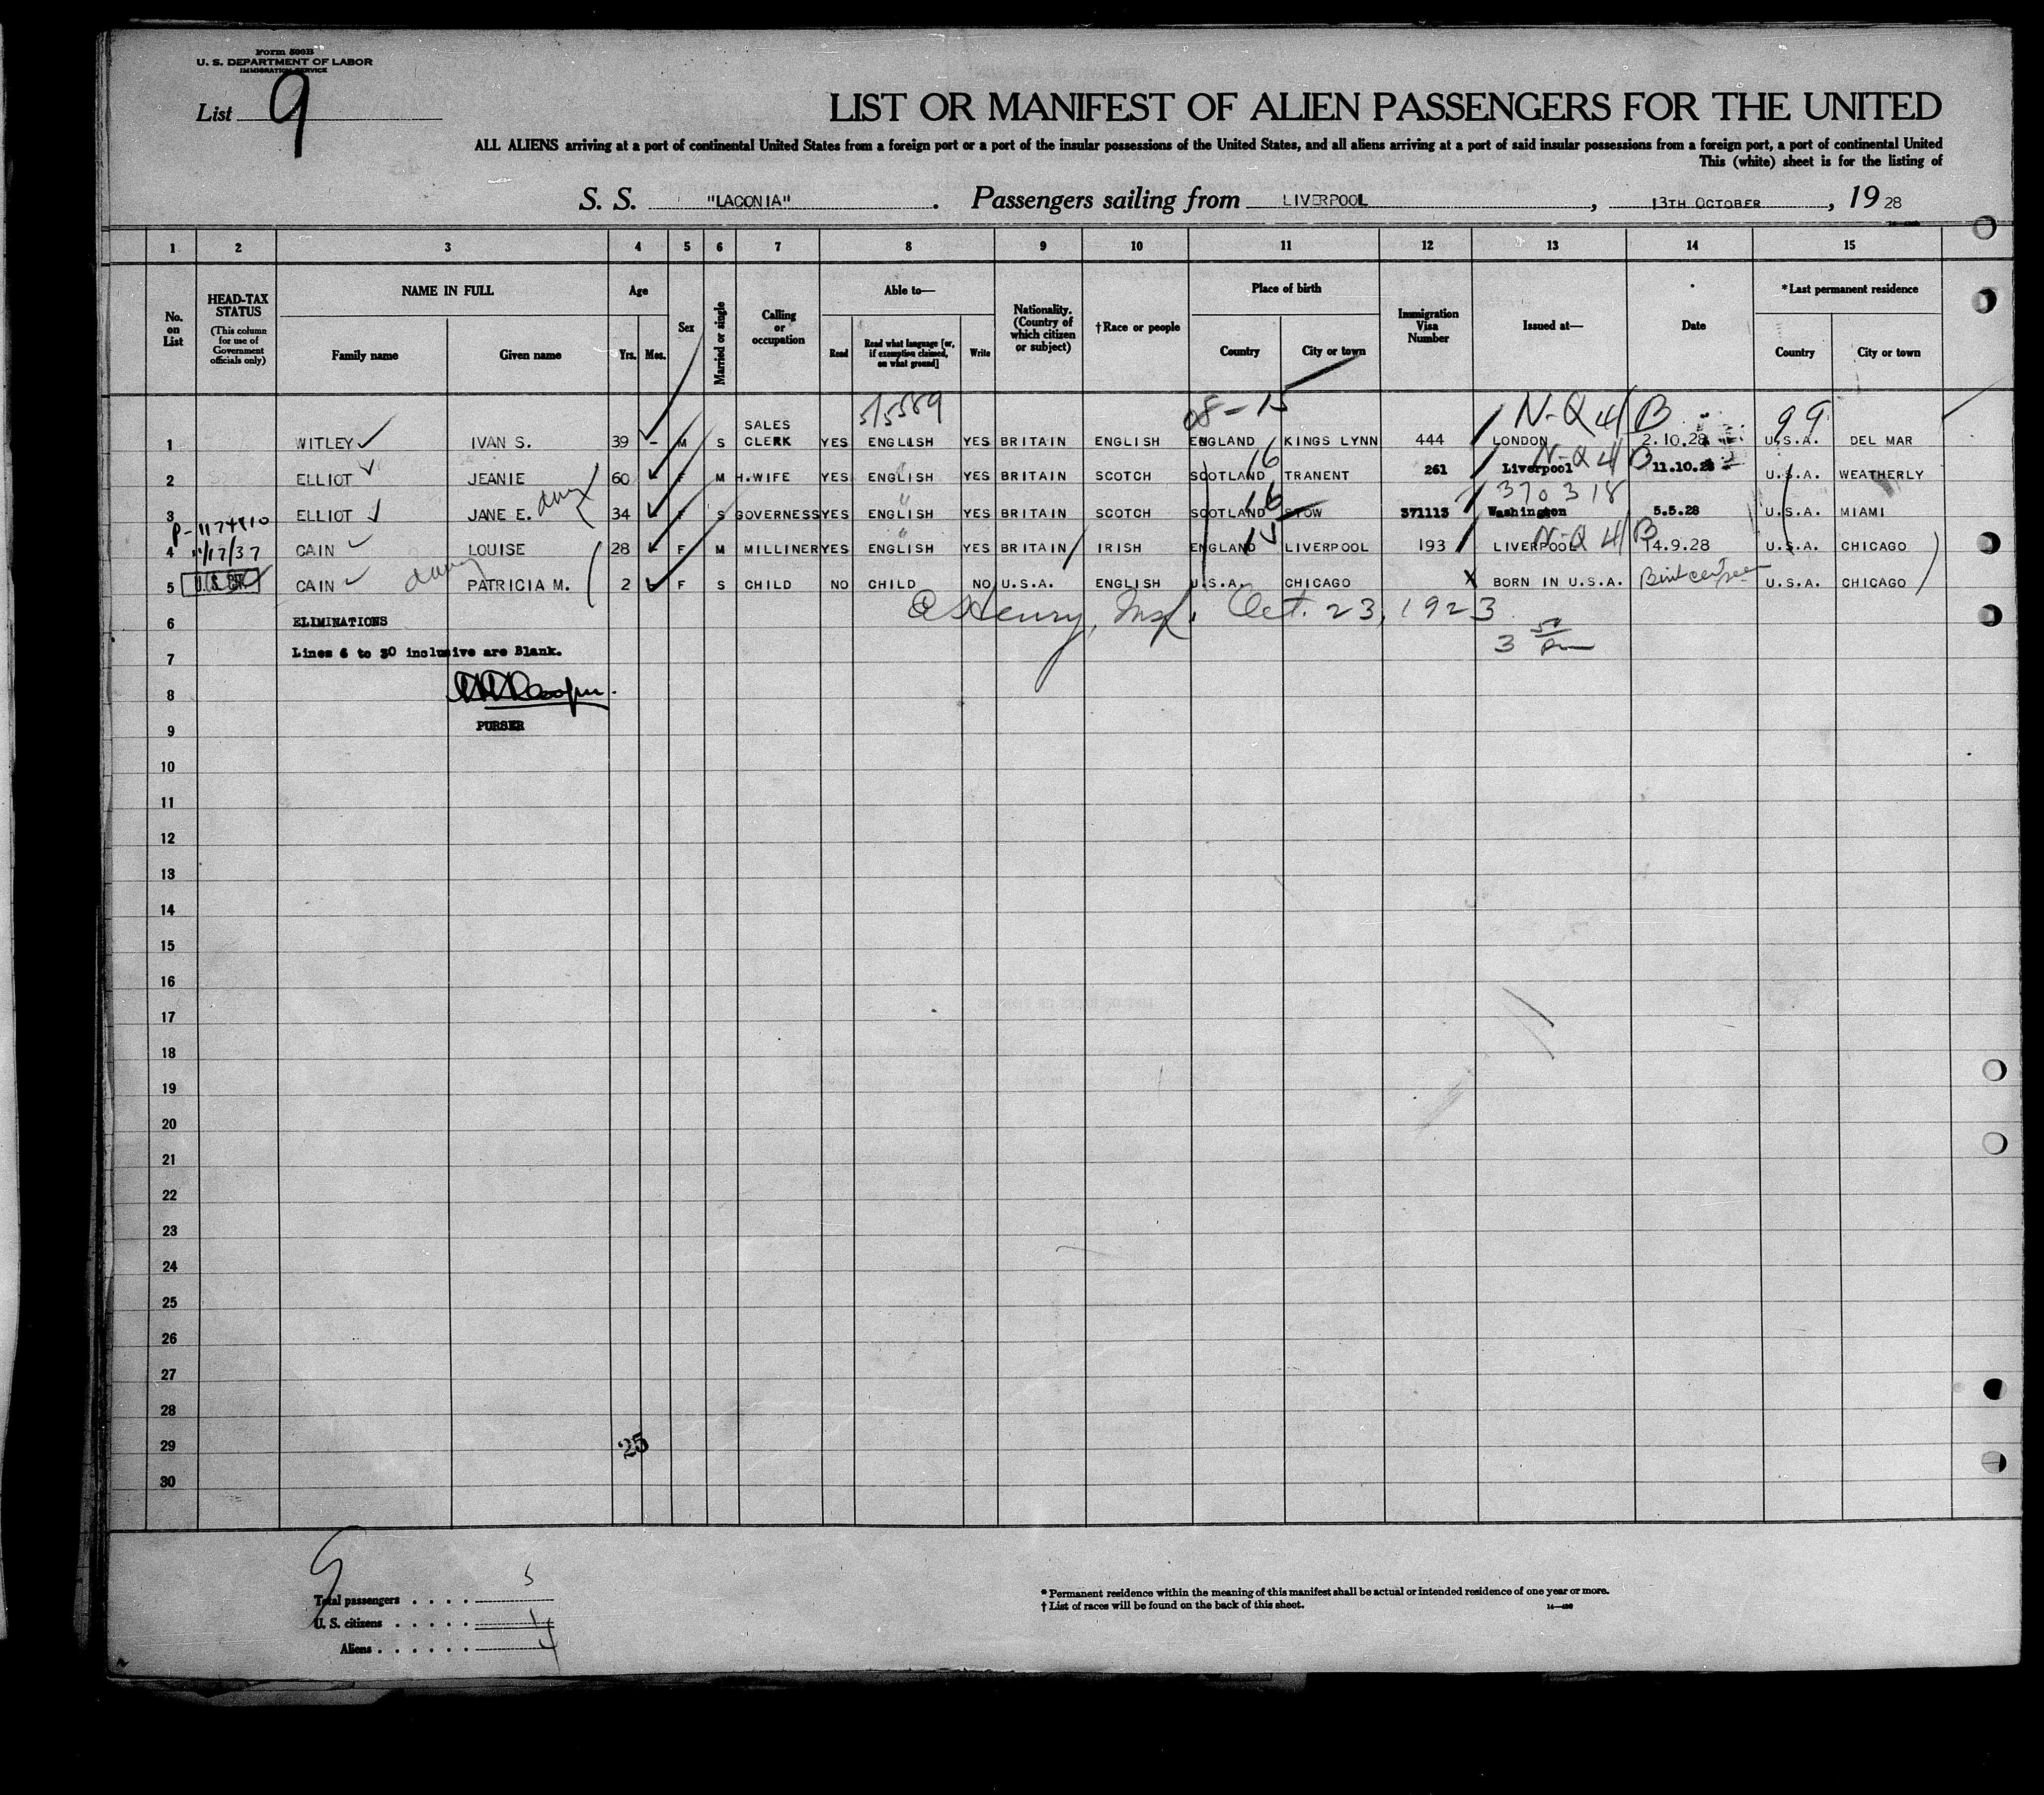 Form 500B
U. S. DEPARTMENT OF LABOR
IMMIGRATION SERVICE
List 9
LIST OR MANIFEST OF ALIEN PASSENGERS FOR THE UNITED
ALL ALIENS arriving at a port of continental United States from a foreign port or a port of the insular possessions of the United States, and all aliens arriving at a port of said insular possessions from a foreign port, a port of continental United
This (white) sheet is for the listing of
S. S. "LACONIA". Passengers sailing from LIVERPOOL, 13TH OCTOBER, 19 28
1 2 3 4 5 6 7 8 9 10 11 12 13 14 15
No. on List
HEAD-TAX STATUS
(This column for use of Government officials only)
NAME IN FULL
Family name Given name
Age
Yrs. Mos.
Sex
Married or single
Calling or occupation
Able to—
Read
Read what language [or, if exemption claimed, on what ground]
Write
Nationality. (Country of which citizen or subject)
†Race or people
Place of birth
Country City or town
Immigration Visa Number
Issued at—
Date
*Last permanent residence
Country City or town
515589 08-15 N-Q 4/B 99
1 WITLEY IVAN S. 39 - M S SALES CLERK YES ENGLISH YES BRITAIN ENGLISH ENGLAND KINGS LYNN 444 LONDON 2.10.28 U.S.A. DEL MAR
16 N-Q 4/B
2 ELLIOT JEANIE 60 F M H.WIFE YES ENGLISH YES BRITAIN SCOTCH SCOTLAND TRANENT 261 Liverpool 11.10.28 U.S.A. WEATHERLY
16 370318
3 ELLIOT JANE E. 34 F S GOVERNESS YES ENGLISH YES BRITAIN SCOTCH SCOTLAND STOW 371113 Washington 5.5.28 U.S.A. MIAMI
P-1174810
15 N-Q 4/B
4 11/17/37 CAIN LOUISE 28 F M MILLINER YES ENGLISH YES BRITAIN IRISH ENGLAND LIVERPOOL 193 LIVERPOOL 14.9.28 U.S.A. CHICAGO
5 CAIN PATRICIA M. 2 F S CHILD NO CHILD NO U.S.A. ENGLISH U.S.A. CHICAGO X BORN IN U.S.A. U.S.A. CHICAGO
Henry, Insp. Oct. 23, 1923
6 ELIMINATIONS
3 50 pm
7 Lines 6 to 30 inclusive are Blank.
8
9 PURSER
10
11
12
13
14
15
16
17
18
19
20
21
22
23
24
25
26
27
28
29 25
30
Total passengers . . . . 5
U. S. citizens . . . . . 1
Aliens . . . . . . 4
* Permanent residence within the meaning of this manifest shall be actual or intended residence of one year or more.
† List of races will be found on the back of this sheet.